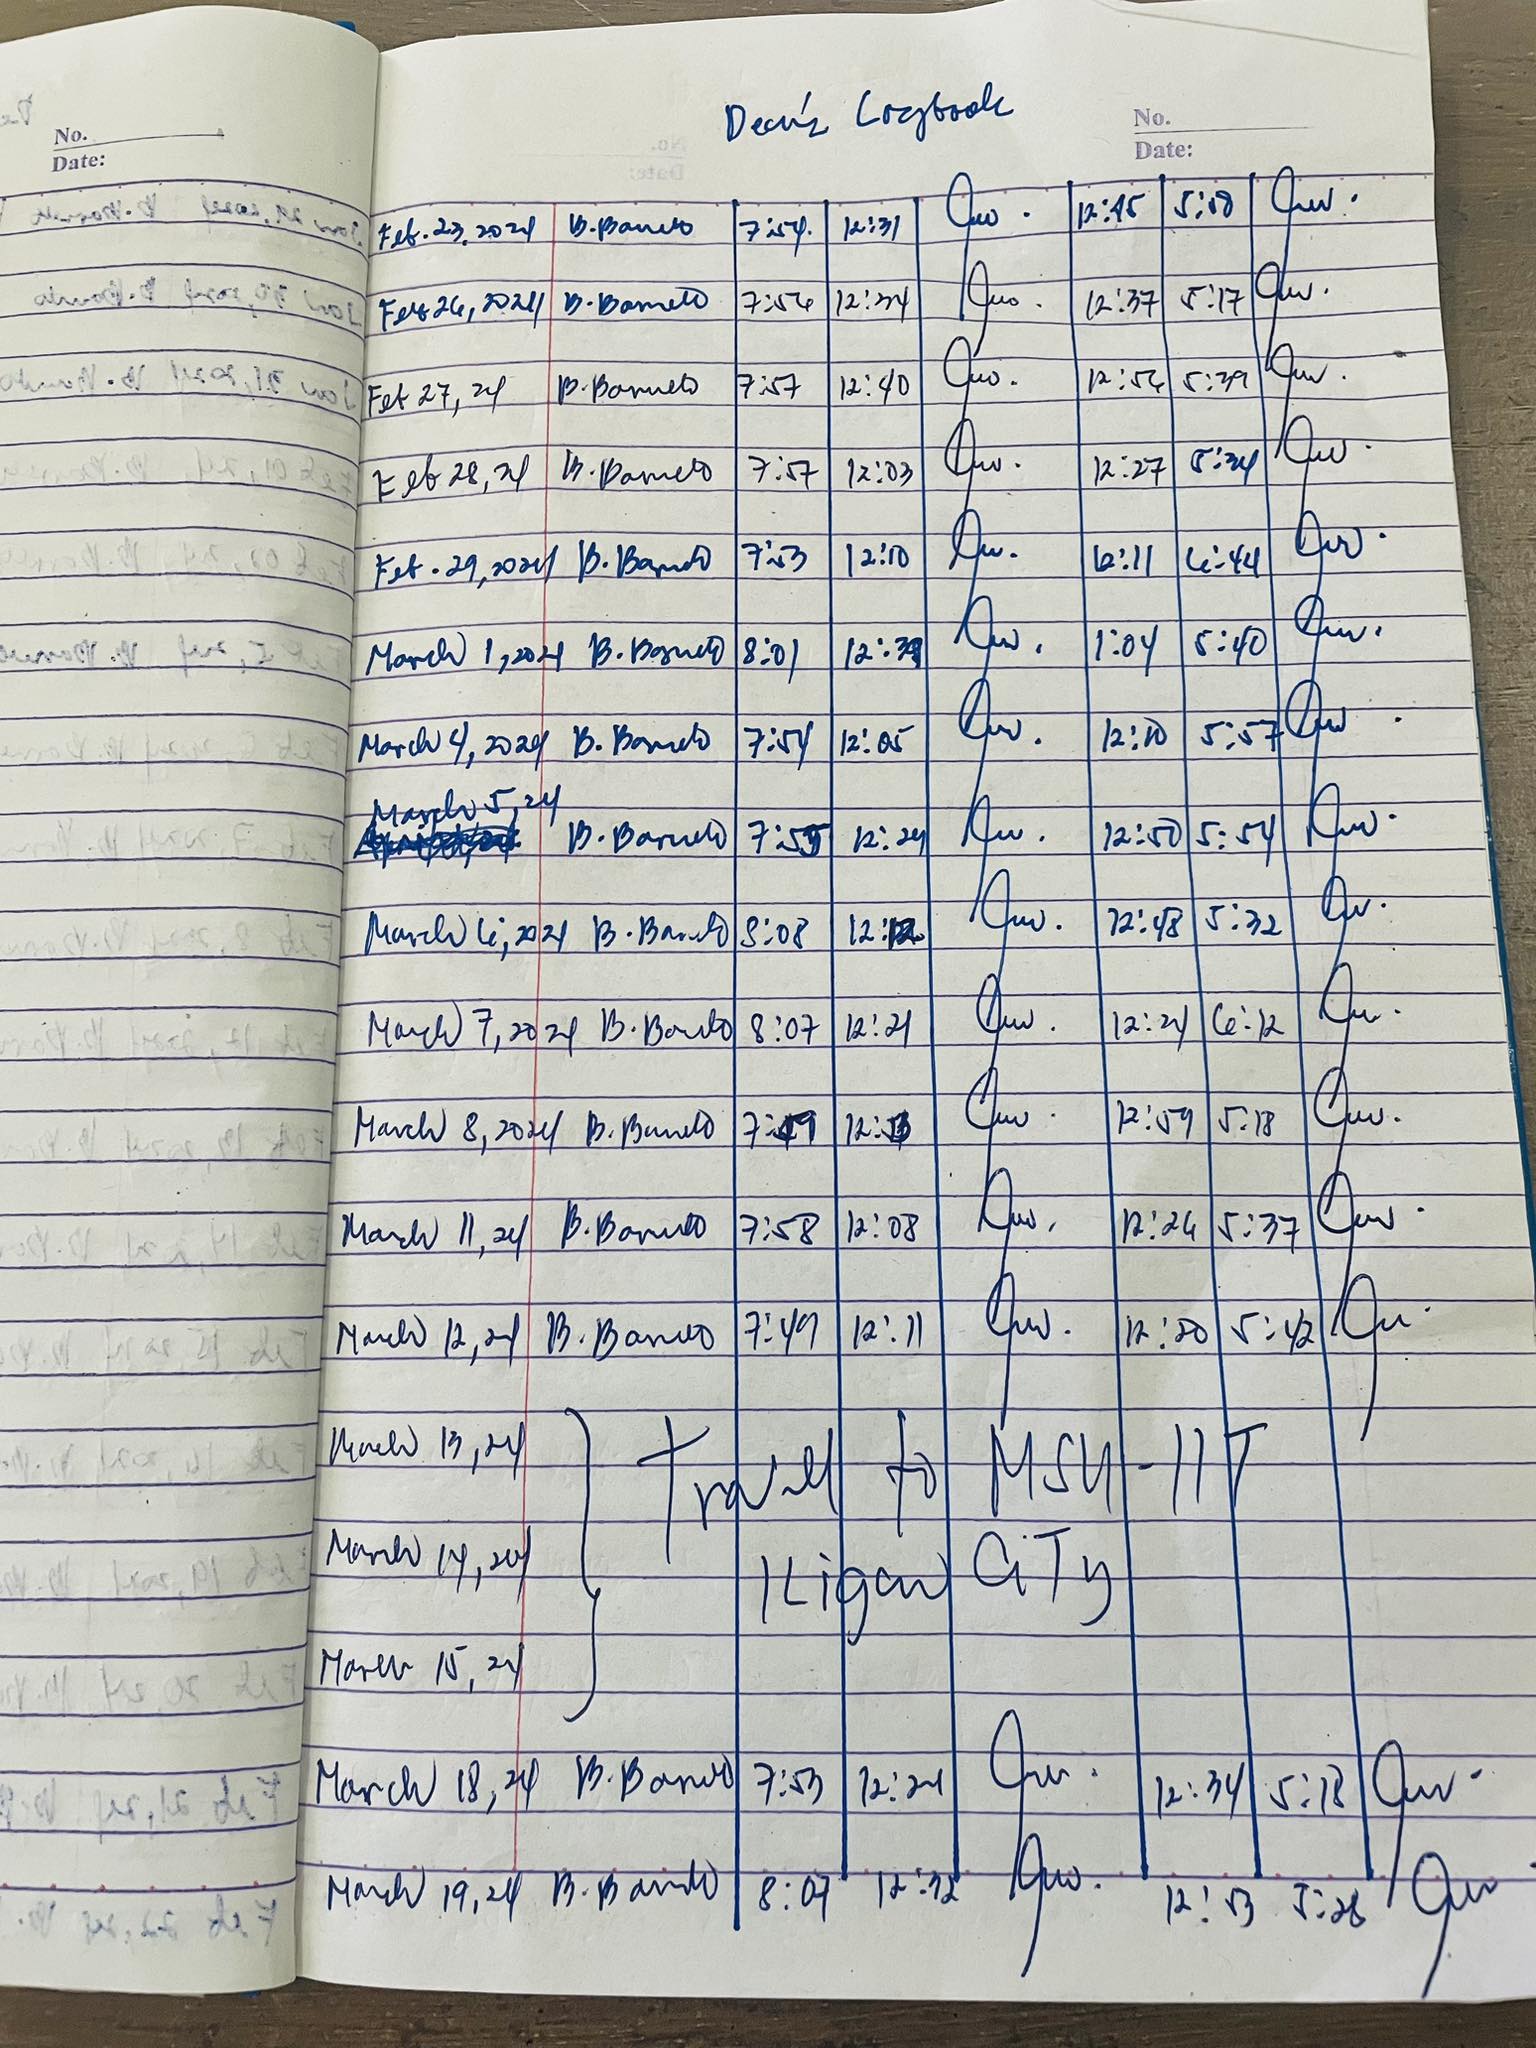 Dean's Logbook
No.
Date:
No.
Date:
Feb. 23, 2024 B. Barreto 7:54 12:31 12:45 5:18
Feb 26, 2024 B. Barreto 7:56 12:34 12:37 5:17
Feb 27, 24 B. Barreto 7:57 12:40 12:56 5:39
Feb 28, 24 B. Barreto 7:57 12:03 12:27 5:34
Feb. 29, 2024 B. Barreto 7:53 12:10 12:11 6:44
March 1, 2024 B. Barreto 8:01 1:04 5:40
March 4, 2024 B. Barreto 7:54 12:05 12:10 5:57
March 5, 24
B. Barreto 7:55 12:24 12:50 5:54
March 6, 2024 B. Barreto 8:08 12:12 12:48 5:32
March 7, 2024 B. Barreto 8:07 12:21 12:24 6:12
March 8, 2024 B. Barreto 12:59 5:18
March 11, 24 B. Barreto 7:58 12:08 12:26 5:37
March 12, 24 B. Barreto 7:49 12:11 12:20 5:42
March 13, 24 Travel to MSU-IIT
March 14, 24 Iligan City
March 15, 24
March 18, 24 B. Barreto 7:53 12:24 12:34 5:18
March 19, 24 B. Barreto 8:07 12:32 12:53 5:28